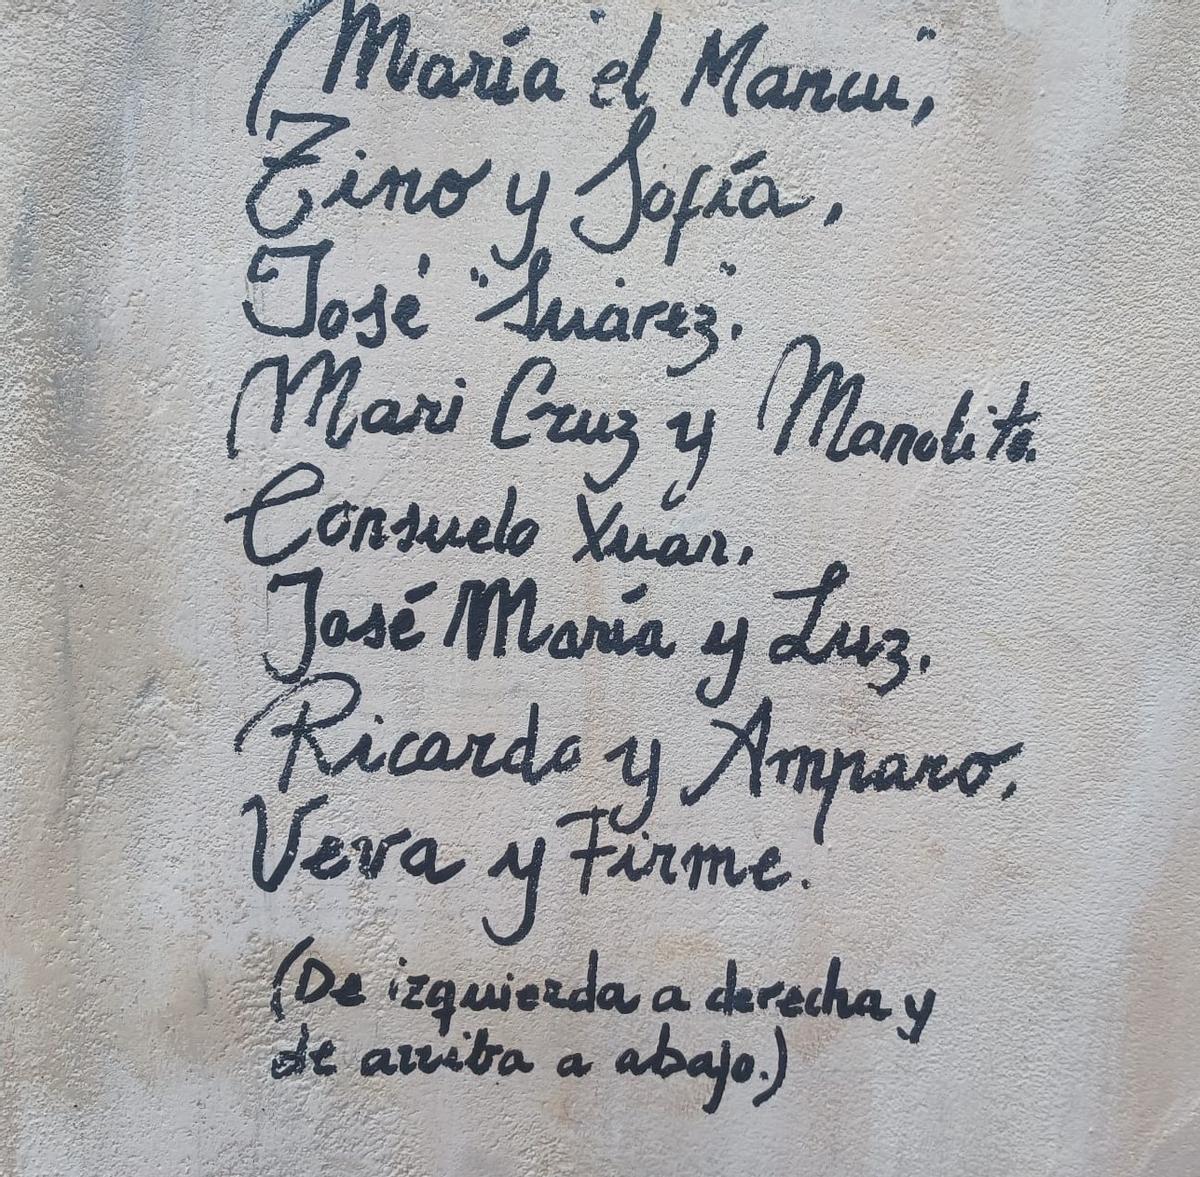 María "el Mancu",
Zino y Sofía,
José "Suárez".
Mari Cruz y Manolito.
Consuelo Xuan.
José María y Luz.
Ricardo y Amparo.
Veva y Firme.
(De izquierda a derecha y
de arriba a abajo.)